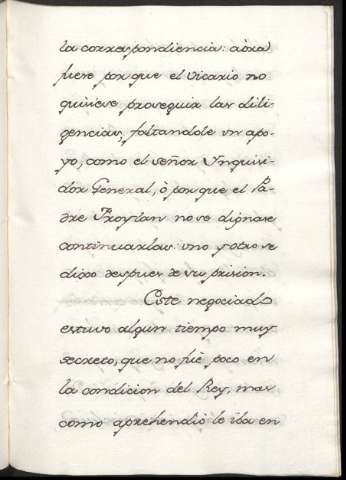 la correspondiencia: aóra
fuese por que el vicario no
quisiese proseguir las dili-
gencias, faltandole un apo-
yo, como el señor Ynquisi-
dor General, ò por que el Pa-
dre Froylan no se dignase
continuarlas: uno y otro se
dixo despues de su prision.
Este negociado
estuvo algun tiempo muy
secreto, que no fuè poco en
la condicion del Rey, mas
como aprehendiò le iba en